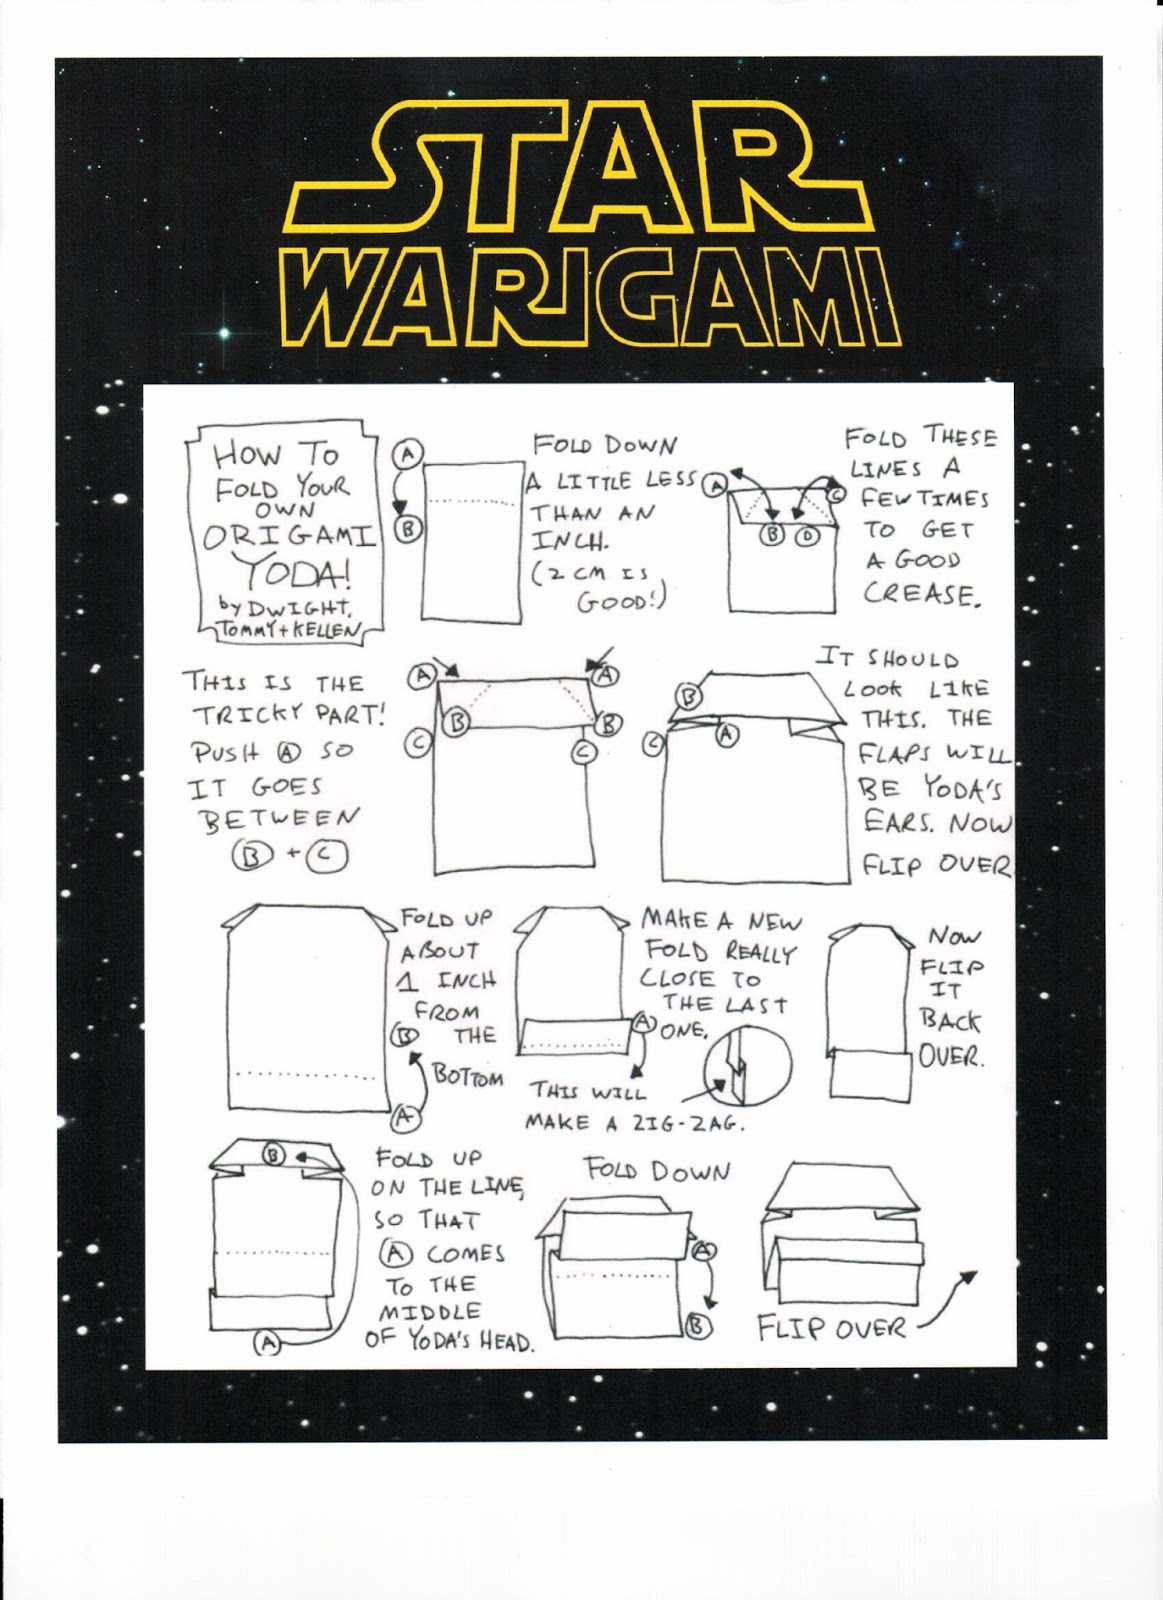 STAR
WARIGAMI
HOW TO
FOLD YOUR
OWN
ORIGAMI
YODA!
by DWIGHT,
TOMMY + KELLEN
A
B
FOLD DOWN
A LITTLE LESS
THAN AN
INCH.
(2 CM IS
GOOD!)
A
C
B
D
FOLD THESE
LINES A
FEW TIMES
TO GET
A GOOD
CREASE.
THIS IS THE
TRICKY PART!
PUSH A SO
IT GOES
BETWEEN
B + C
A
A
B
B
C
C
B
C
A
IT SHOULD
LOOK LIKE
THIS. THE
FLAPS WILL
BE YODA'S
EARS. NOW
FLIP OVER.
FOLD UP
ABOUT
1 INCH
FROM
B THE
BOTTOM
A
MAKE A NEW
FOLD REALLY
CLOSE TO
THE LAST
ONE.
A
THIS WILL
MAKE A ZIG-ZAG.
NOW
FLIP
IT
BACK
OVER.
B
A
FOLD UP
ON THE LINE,
SO THAT
A COMES
TO THE
MIDDLE
OF YODA'S HEAD.
FOLD DOWN
A
B
FLIP OVER